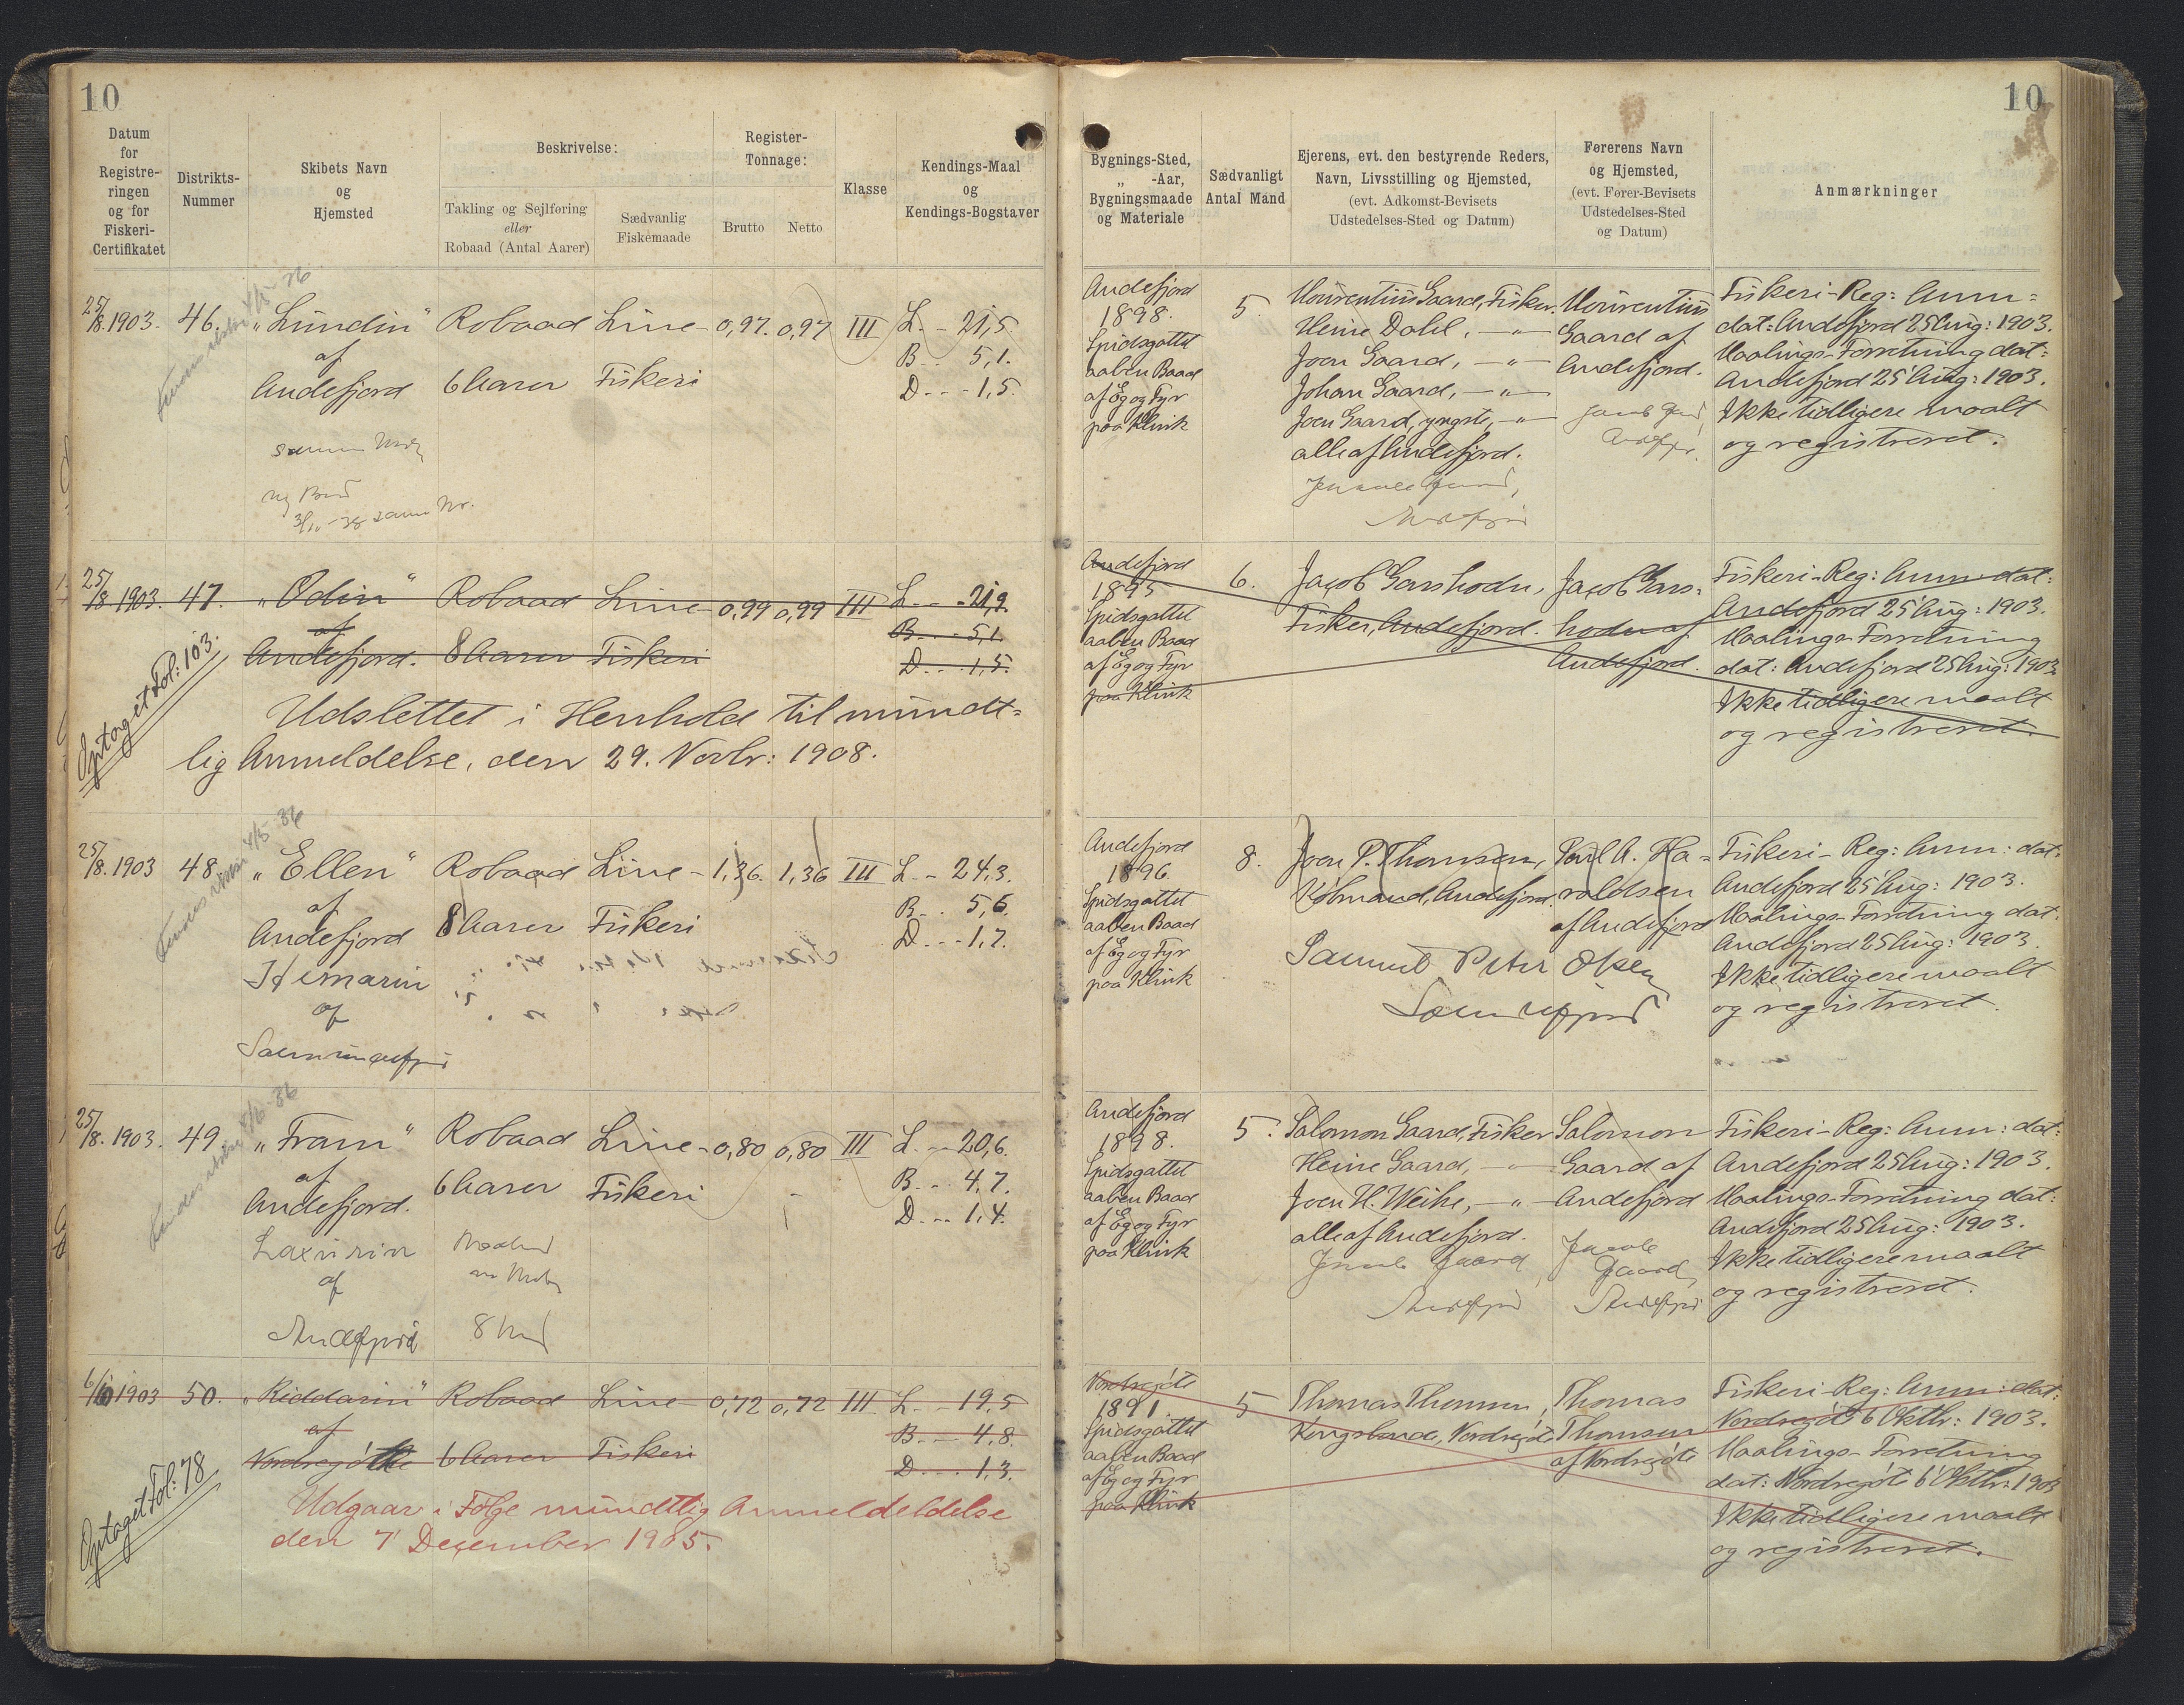 10
Datum
for
Registre-
ringen
og for
Fiskeri-
Certifikatet
Distrikts-
Nummer
Skibets Navn
og
Hjemsted
Beskrivelse:
Takling og Sejlføring
eller
Robaad (Antal Aarer)
Sædvanlig
Fiskemaade
Register-
Tonnage:
Brutto Netto
Klasse
Kendings-Maal
og
Kendings-Bogstaver
25/8. 1903. 46. „Lundin“ Robaad Line- 0,97. 0,97 III L. - 21,5.
af B - - 5,1.
Andefjord 6 Aarer Fiskeri D - - - 1,5.
4/5-36
ny Baad
3/10-38 samme Nr.
25/8 1903. 47. „Odin“ Robaad Line- 0,99 0,99 III L - - - 21,9.
af B - - - 5,1.
Andefjord. 8 Aarer Fiskeri D - - - 1,5.
Optaget Fol: 103.
Udslettet i Henhold til mundt=
lig Anmeldelse, den 29. Novbr: 1908.
4/5-36
25/8. 1903 48. „Ellen“ Robaad Line- 1,36. 1,36 III L - - 24,3.
af B - . 5,6.
Andefjord 8 Aarer Fiskeri D - - - 1,7.
Hemarin
af
25/8. 1903. 49. „Fram“ Robaad Line- 0,80 0,80 III L. - - 20,6.
af B - - . 4,7.
Andefjord. 6 Aarer Fiskeri D - - - 1,4.
af
Andefjord
6/10 1903 50. „Riddarin“ Robaad Line- 0,72 0,72 III L - - 19,5
af B - - - 4,8.
Nordregøte 6 Aarer Fiskeri D - - - 1,3.
Optaget Fol: 78
Udgaar i Følge mundtlig Anmeldeldelse
den 7' December 1905.
10
Bygnings-Sted,
„ -Aar,
Bygningsmaade
og Materiale
Sædvanligt
Antal Mand
Ejerens, evt. den bestyrende Reders,
Navn, Livsstilling og Hjemsted,
(evt. Adkomst-Bevisets
Udstedelses-Sted og Datum)
Førerens Navn
og Hjemsted,
(evt. Fører-Bevisets
Udstedelses-Sted
og Datum)
Anmærkninger
Andefjord
1898.
Spidsgattet
aaben Baad
af Eg og Fyr
paa Klink
5.
Mourentius Gaard, Fisker.
Heine Dahl, — „ —
Joen Gaard, — „ —
Johan Gaard, — „ —
Joen Gaard, yngste, — „ —
alle af Andefjord.
Mourentius
Gaard af
Andefjord.
Fiskeri-Reg: Anm=
dat: Andefjord 25 Aug: 1903.
Maalings-Forretning dat:
Andefjord 25' Aug: 1903.
Ikke tidligere maalt
og registreret.
Andefjord
1895
Spidsgattet
aaben Baad
af Eg og Fyr
paa Klink
6.
Jacob Garshodn,
Fisker, Andefjord.
Jacob Gars=
hodn af
Andefjord.
Fiskeri-Reg: Anm dat:
Andefjord 25' Aug: 1903.
Maalings Forretning
dat: Andefjord 25 Aug: 1903
Ikke tidligere maalt
og registreret.
Andefjord
1896
Spidsgattet
aaben Baad
af Eg og Fyr
paa Klink
8.
Joen P. Thomsen,
Købmand, Andefjord.
Samuel Peter Olsen
Poul A. Ha=
raldsen
af Andefjord
Fiskeri- Reg: Anm: dat:
Andefjord 25' Aug: 1903.
Maalings-Forretning dat.
Andefjord 25 Aug: 1903.
Ikke tidligere maalt
og registreret.
Andefjord
1898.
Spidsgattet
aaben Baad
af Eg og Fyr
paa Klink
5.
Salomon Gaard, Fisker
Heine Gaard, — „ —
Joen H. Weihe, — „ —
alle af Andefjord.
Salomon
Gaard af
Andefjord
Jacob
Gaard,
Andefjord
Fiskeri-Reg: Anm: dat:
Andefjord 25 Aug: 1903.
Maalings-Forretning dat:
Andefjord 25 Aug: 1903.
Ikke tidligere maalt
og registreret.
Nordregøte
1891.
Spidsgattet
aaben Baad
af Eg og Fyr
paa Klink
5
Thomas Thomsen,
Kongsbonde, Nordregøte
Thomas
Thomsen
af Nordregøte
Fiskeri-Reg: Anm: dat:
Nordregøte 6 Oktbr: 1903.
Maalings-Forretning
dat: Nordregøte 6' Oktbr: 1903
Ikke tidligere maalt
og registreret.